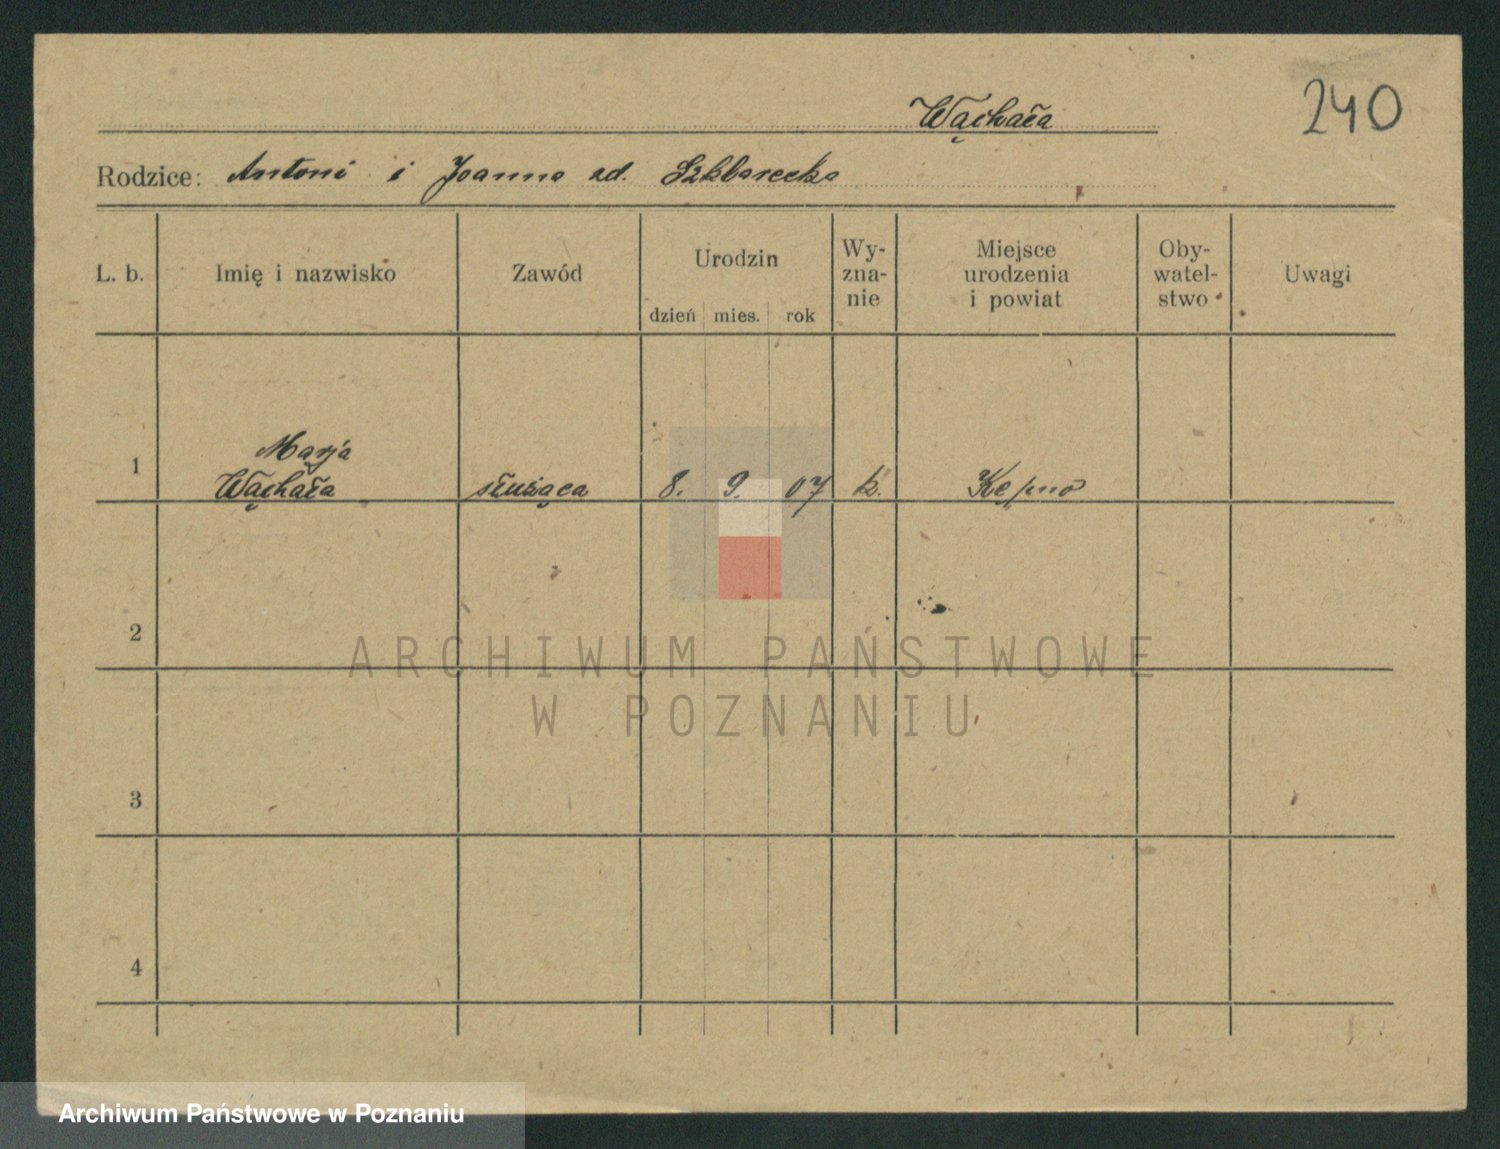 240
Wąchała
Rodzice: Antoni i Joanna zd. Szklarecka
L. b. Imię i nazwisko Zawód Urodzin dzień mies. rok Wy-zna-nie Miejsce urodzenia i powiat Oby-watel-stwo Uwagi
Marja
1 Wąchała służąca 8. 9. 07 k. Kępno
2
ARCHIWUM PAŃSTWOWE
W POZNANIU
3
4
Archiwum Państwowe w Poznaniu